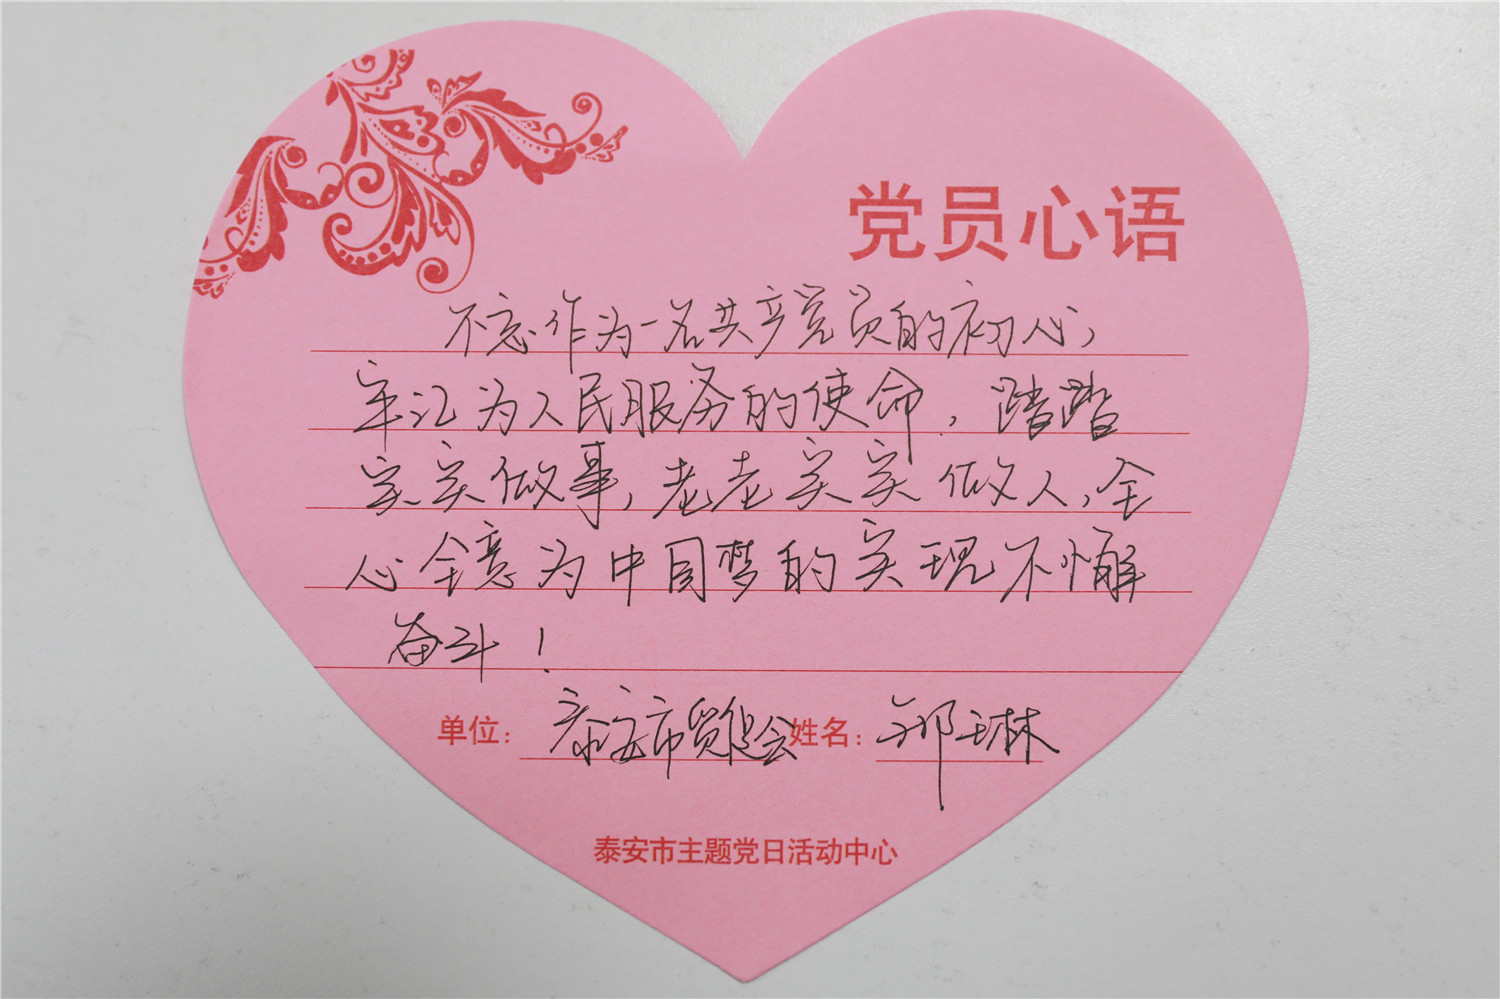 党员心语
不忘作为一名共产党员的初心,
牢记为人民服务的使命,踏踏
实实做事,老老实实做人,全
心全意为中国梦的实现不懈
奋斗!
单位: 泰安市贸促会 姓名: 郑琳
泰安市主题党日活动中心